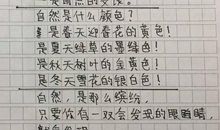 自然是什么颜色?
是春天迎春花的黄色!
是夏天绿草的墨绿色!
是秋天树叶的金黄色!
是冬天雪花的银白色!
自然,是那么缤纷,
只要你有一双会发现的眼睛